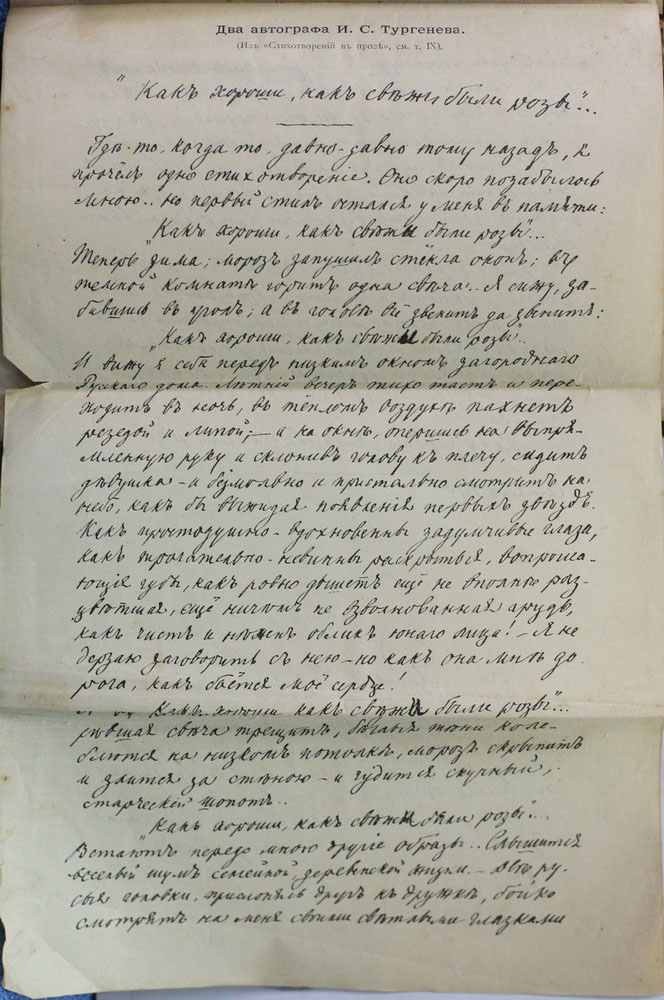 Два автографа И. С. Тургенева.
(Изъ «Стихотвореній въ прозѣ», см. т. IX).
"Какъ хороши, какъ свѣжи были розы"...
Гдѣ-то, когда-то, давно-давно тому назадъ, я
прочёлъ одно стихотвореніе. Оно скоро позабылось
мною.. но первый стихъ остался у меня въ памяти:
Какъ хороши, какъ свѣжи были розы"...
Теперь зима; морозъ запушилъ стёкла оконъ; въ
темной комнатѣ горитъ одна свѣча. Я сижу, за-
бившись въ уголъ; а въ головѣ всё звенитъ да звенитъ:
"Какъ хороши, какъ свѣжи были розы"..
И вижу я себя передъ низкимъ окномъ загороднаго
Русскаго дома. Лѣтній вечеръ тихо таетъ и пере-
ходитъ въ ночь, въ тёпломъ воздухѣ пахнетъ
резедой и липой; — а на окнѣ, опершись на выпря-
мленную руку и склонивъ голову къ плечу, сидитъ
дѣвушка - и безмолвно и пристально смотритъ на
небо, какъ бы выжидая появленія первыхъ звѣздъ.
Какъ простодушно-вдохновенны задумчивые глаза,
какъ трогательно-невинны раскрытыя, вопроша-
ющія губы, какъ ровно дышетъ ещё не вполнѣ раз-
цвѣтшая, ещё ничѣмъ не взволнованная грудь,
какъ чистъ и нѣженъ обликъ юнаго лица! - Я не
дерзаю заговорить съ нею - но какъ она мнѣ до-
рога, какъ бьётся моё сердце!
Какъ хороши какъ свѣжи были розы"...
свѣча трещитъ, бѣглыя тѣни коле-
блются на низкомъ потолкѣ, морозъ скрыпитъ
и злится за стѣною - и чудится скучный,
старческій шопотъ..
"Какъ хороши, какъ свѣжи были розы"...
Встаютъ передо мною другіе образы.. Слышится
весёлый шумъ семейной, деревенской жизни. - Двѣ ру-
сыя головки, прислонясь другъ къ дружкѣ, бойко
смотрятъ на меня своими свѣтлыми глазками